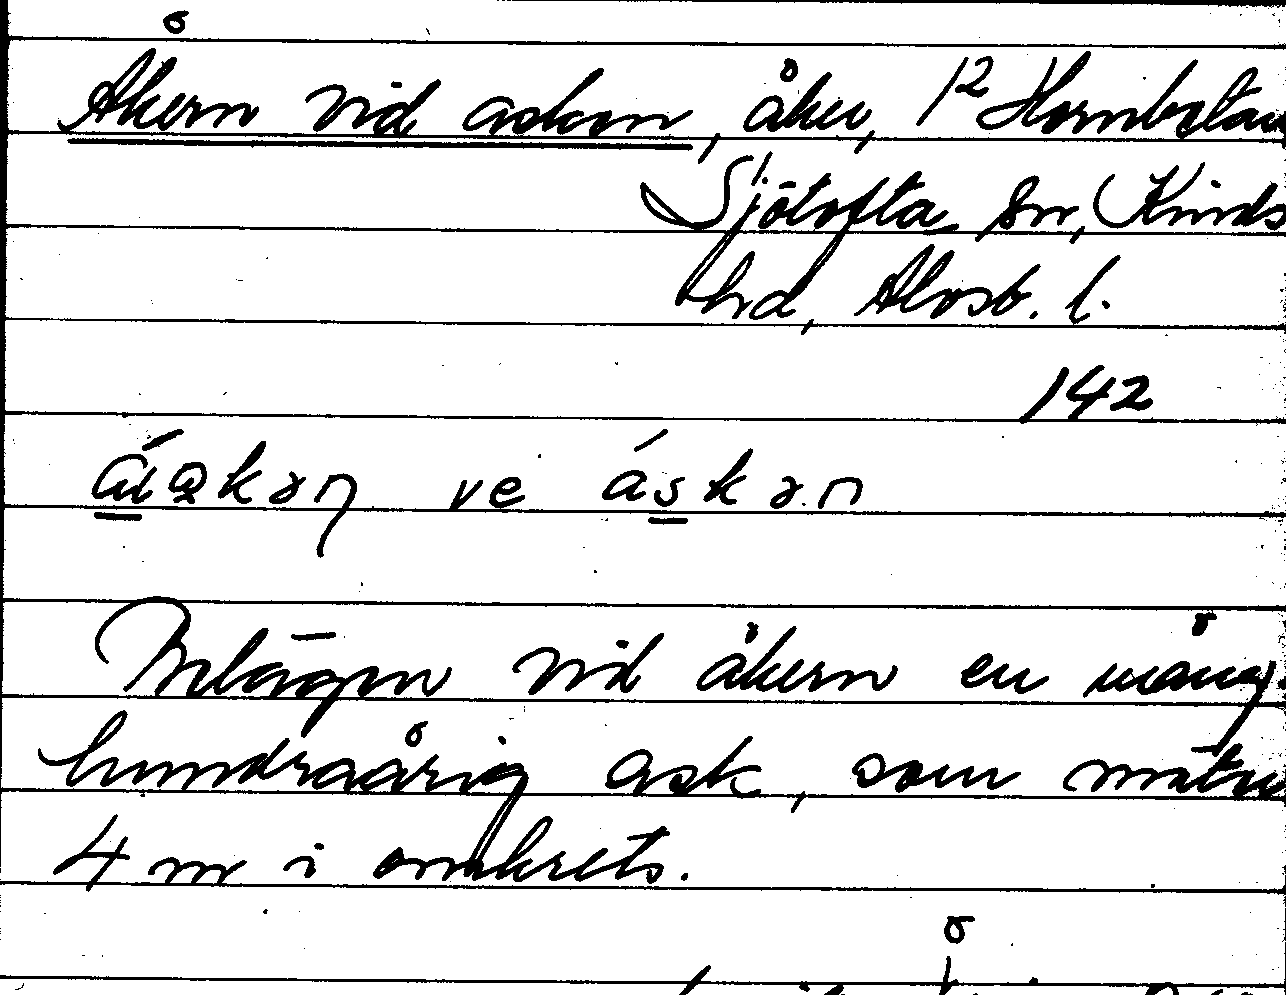 Åkern vid askom, åker, 12 Hornbetan
Sjötofta sn, Kinds
hd, Älvsb. l.
142
ve áskan
Belägen vid åkern en mång-
hundraårig ask, som mäter
4 m i omkrets.